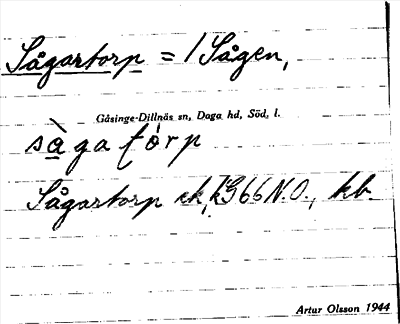 Sågartorp = / Sågen,
Gåsinge-Dillnäs sn, Daga hd, Söd. l.
sàga tórp
Sågartorp ek, G66 N.O., hb.
Artur Olsson 1944